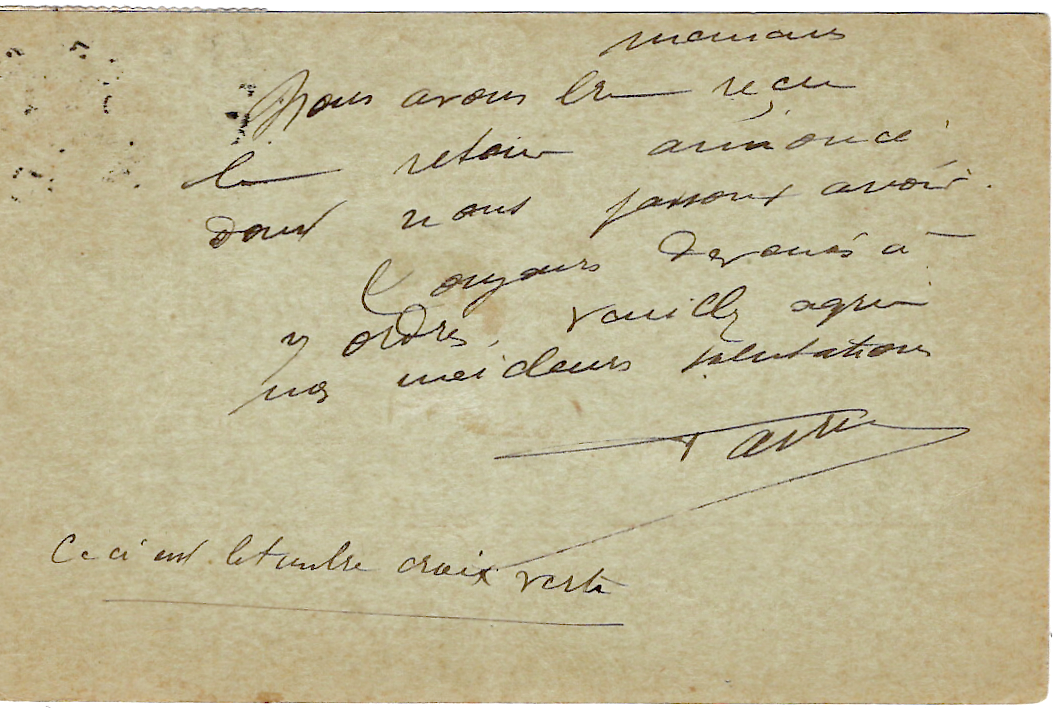 Messieurs
Nous avons bien reçu
le retour annoncé
dont nous passons avoir.
Toujours dévoués à
v ordres, veuillez agréer
nos meilleurs salutations
Ceci est le timbre croix verte